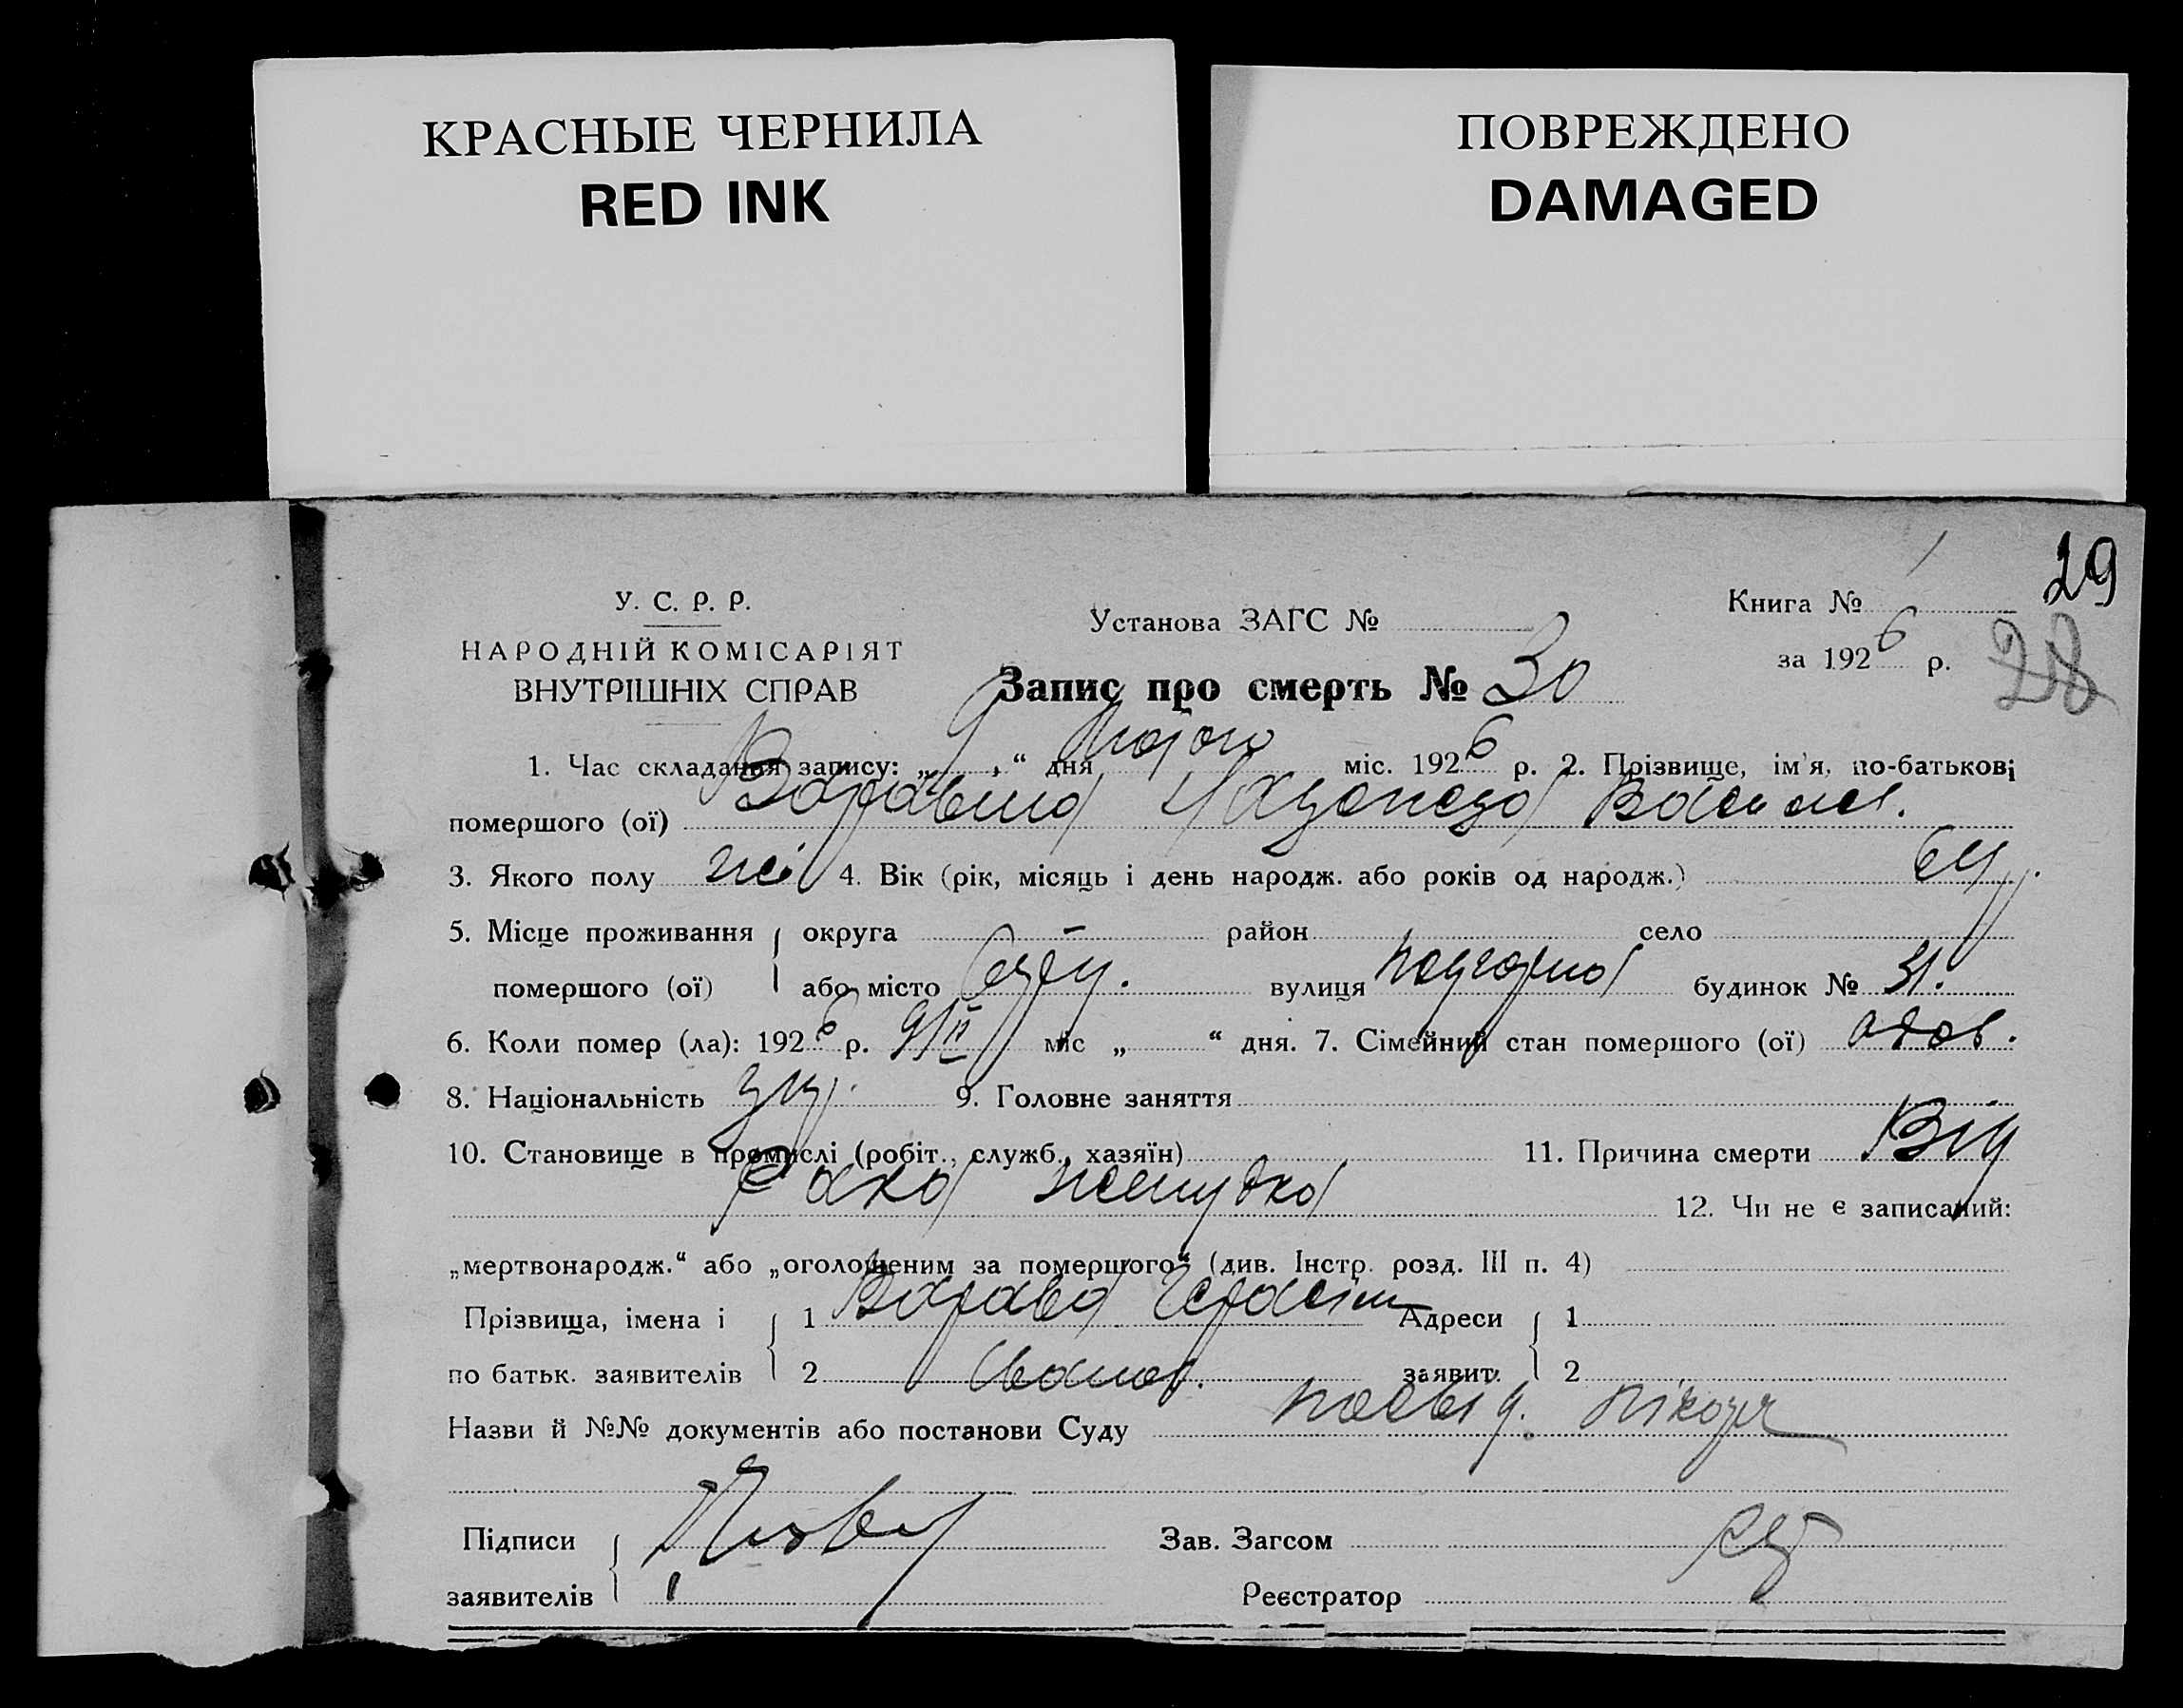 КРАСНЫЕ ЧЕРНИЛА
RED INK
ПОВРЕЖДЕНО
DAMAGED
29
28
У. С. Р. Р.
НАРОДНІЙ КОМІСАРІЯТ
ВНУТРІШНІХ СПРАВ
Установа ЗАГС №
Книга № 1
за 1926 р.
Запис про смерть № 30
1. Час складання запису: „ 9 “ дня міс. 1926 р. 2. Прізвище, ім'я, по-батькові
помершого (ої)
3. Якого полу 4. Вік (рік, місяць і день народж. або років од народж.)
5. Місце проживання округа район село
помершого (ої) або місто вулиця будинок № 31.
6. Коли помер (ла): 1926 р. 9/II міс „ “ дня. 7. Сімейний стан помершого (ої)
8. Національність 9. Головне заняття
10. Становище в промислі (робіт., служб., хазяїн) 11. Причина смерти Від
рака желудка 12. Чи не є записаний:
„мертвонародж.“ або „оголошеним за помершого“ (див. Інстр. розд. III п. 4)
Прізвища, імена і 1 Варава Герасім Адреси 1
по батьк. заявителів 2 Иванов. заявит. 2
Назви й №№ документів або постанови Суду посвід. лікаря
Підписи
Зав. Загсом
заявителів
Реєстратор